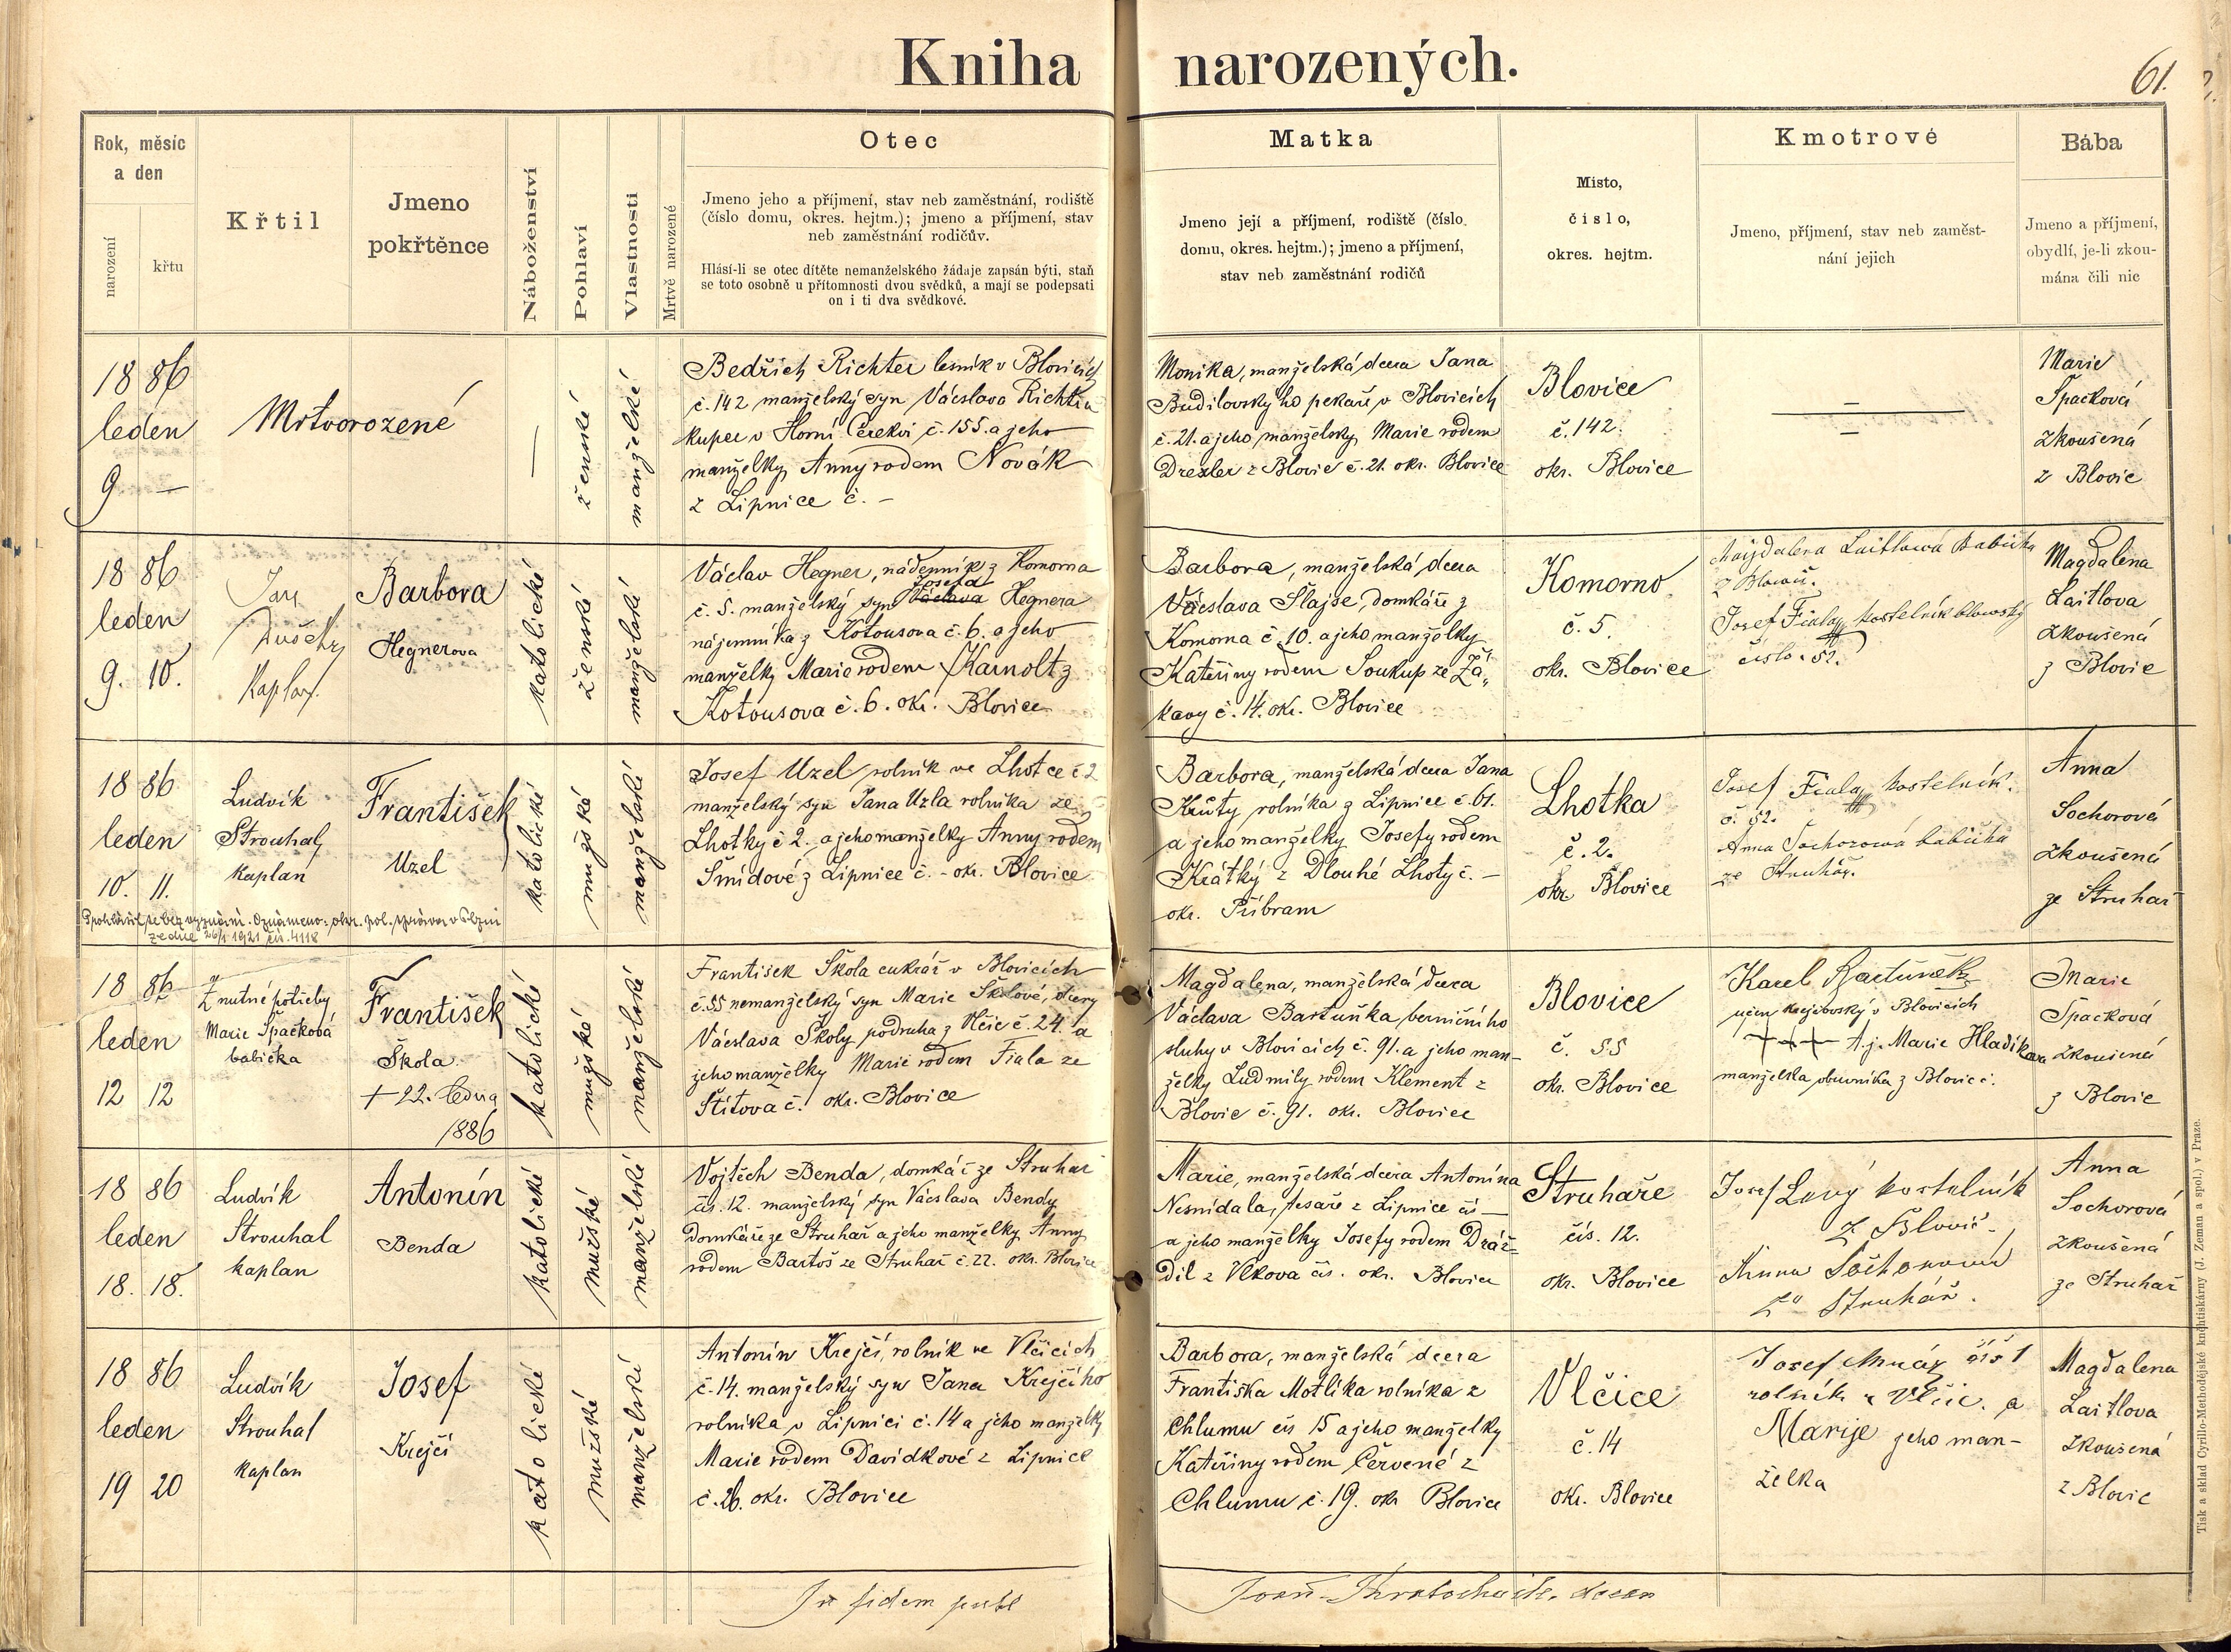 Kniha narozených.
61.
Rok, měsíc
a den
narození
křtu
Křtil
Jmeno
pokřtěnce
Náboženství
Pohlaví
Vlastnosti
Mrtvě narozené
Otec
Jmeno jeho a příjmení, stav neb zaměstnání, rodiště
(číslo domu, okres. hejtm.); jmeno a příjmení, stav
neb zaměstnání rodičův.
Hlásí-li se otec dítěte nemanželského žádaje zapsán býti, staň
se toto osobně u přítomnosti dvou svědků, a mají se podepsati
on i ti dva svědkové.
Matka
Jmeno její a příjmení, rodiště (číslo
domu, okres. hejtm.); jmeno a příjmení,
stav neb zaměstnání rodičů
Místo,
číslo,
okres. hejtm.
Kmotrové
Jmeno, příjmení, stav neb zaměst-
nání jejich
Bába
Jmeno a příjmení,
obydlí, je-li zkou-
mána čili nic
18 86
leden
9 —
Mrtvorozené
—
ženské
manželské
Bedřich Richter lesník v Blovicích
č. 142 manželský syn Václava Richtra
kupce v Horní Cerekvi č. 155. a jeho
manželky Anny rodem Novák
z Lipnice č. –
Monika, manželská dcera Jana
Budilovského pekaře v Blovicích
č. 21. a jeho manželky Marie rodem
Drexler z Blovic č. 21. okr. Blovice
Blovice
č. 142.
okr. Blovice
Marie
Špačková
zkoušená
z Blovic
18 86
leden
9. 10.
Jan
Dušek
Kaplan
Barbora
Hegnerova
katolické
ženské
manželské
Václav Hegner, nádenník z Komorna
Josefa
č. 5. manželský syn Václava Hegnera
nájemníka z Kotousova č. 6. a jeho
manželky Marie rodem Karnolt z
Kotousova č. 6. okr. Blovice
Barbora, manželská dcera
Václava Šlajse, domkáře z
Komorna č. 10. a jeho manželky
Kateřiny rodem Soukup ze Žá„
kavy č. 14. okr. Blovice
Komorno
č. 5.
okr. Blovice
Majdalena Laitlowá Babička
z Blowic.
Josef Fiala kostelník blowský
číslo. 52.
Magdalena
Laitlova
zkoušená
z Blovic
18 86
leden
10. 11.
Ludvík
Strouhal
kaplan
František
Uzel
katolické
mužské
manželské
Josef Uzel rolník ve Lhotce č 2
manželský syn Jana Uzla rolníka ze
Lhotky č 2. a jeho manželky Anny rodem
Šmídové z Lipnice č. – okr. Blovice
Barbora, manželská dcera Jana
rolníka z Lipnice č. 61.
a jeho manželky Josefy rodem
Krátký z Dlouhé Lhoty č. –
okr. Příbram
Lhotka
č. 2.
okr Blovice
Josef Fiala kostelník.
č. 52.
Anna Sochorowá babička
ze Struhař.
Anna
Sochorová
zkoušená
ze Struhař
Prohlásil se bez vyznání. Oznámeno: okr. pol. správa v Plzni
ze dne 26/1 1921 čís. 4118
18 86
leden
12 12
Z nutné potřeby
Marie Špačková
babička
František
Škola
+ 22. ledna
1886
katolické
mužské
manželské
František Škola cukrář v Blovicích
č. 55 nemanželský syn Marie Školové, dcery
Václava Školy podruha z Vlčic č. 24. a
jeho manželky Marie rodem Fiala ze
Štítova č. okr. Blovice
Magdalena, manželská dcera
Václava Bartuňka, berničního
sluhy v Blovicích č. 91. a jeho man-
želky Ludmily rodem Klement z
Blovic č. 91. okr. Blovice
Blovice
č. 55
okr. Blovice
Karel Bartůněk
učen krejčovský v Blovicích
+++ t. j. Marie Hladíkova
manželka obuvníka z Blovic č.
Marie
Špačková
zkoušená
z Blovic
18 86
leden
18. 18.
Ludvík
Strouhal
kaplan
Antonín
Benda
katolické
mužské
manželské
Vojtěch Benda, domkář ze Struhař
čís. 12. manželský syn Václava Bendy
domkáře ze Struhař a jeho manželky Anny
rodem Bartoš ze Struhař č. 22. okr. Blovice
Marie, manželská dcera Antonína
Nesnídala, tesaře z Lipnice čís –
a jeho manželky Josefy rodem Dráž-
dil z Vlkova čís. okr. Blovice
Struhaře
čís. 12.
okr. Blovice
Josef Lavý kostelník
z Blovic
Anna Sochorová
ze Struhař.
Anna
Sochorová
zkoušená
ze Struhař
18 86
leden
19 20
Ludvík
Strouhal
kaplan
Josef
Krejčí
katolické
mužské
manželské
Antonín Krejčí, rolník ve Vlčicích
č. 14. manželský syn Jana Krejčího
rolníka v Lipnici č. 14 a jeho manželky
Marie rodem Davídkové z Lipnice
č. 26. okr. Blovice
Barbora, manželská dcera
Františka Motlíka rolníka z
Chlumu čís 15 a jeho manželky
Kateřiny rodem Červené z
Chlumu č. 19. okr Blovice
Vlčice
č. 14
okr. Blovice
Josef čís 1
rolník z Vlčic. a
Marije jeho man-
želka
Magdalena
Laitlova
zkoušená
z Blovic
In fidem publ
Tisk a sklad Cyrillo-Methodějské knihtiskárny (J. Zeman a spol.) v Praze.